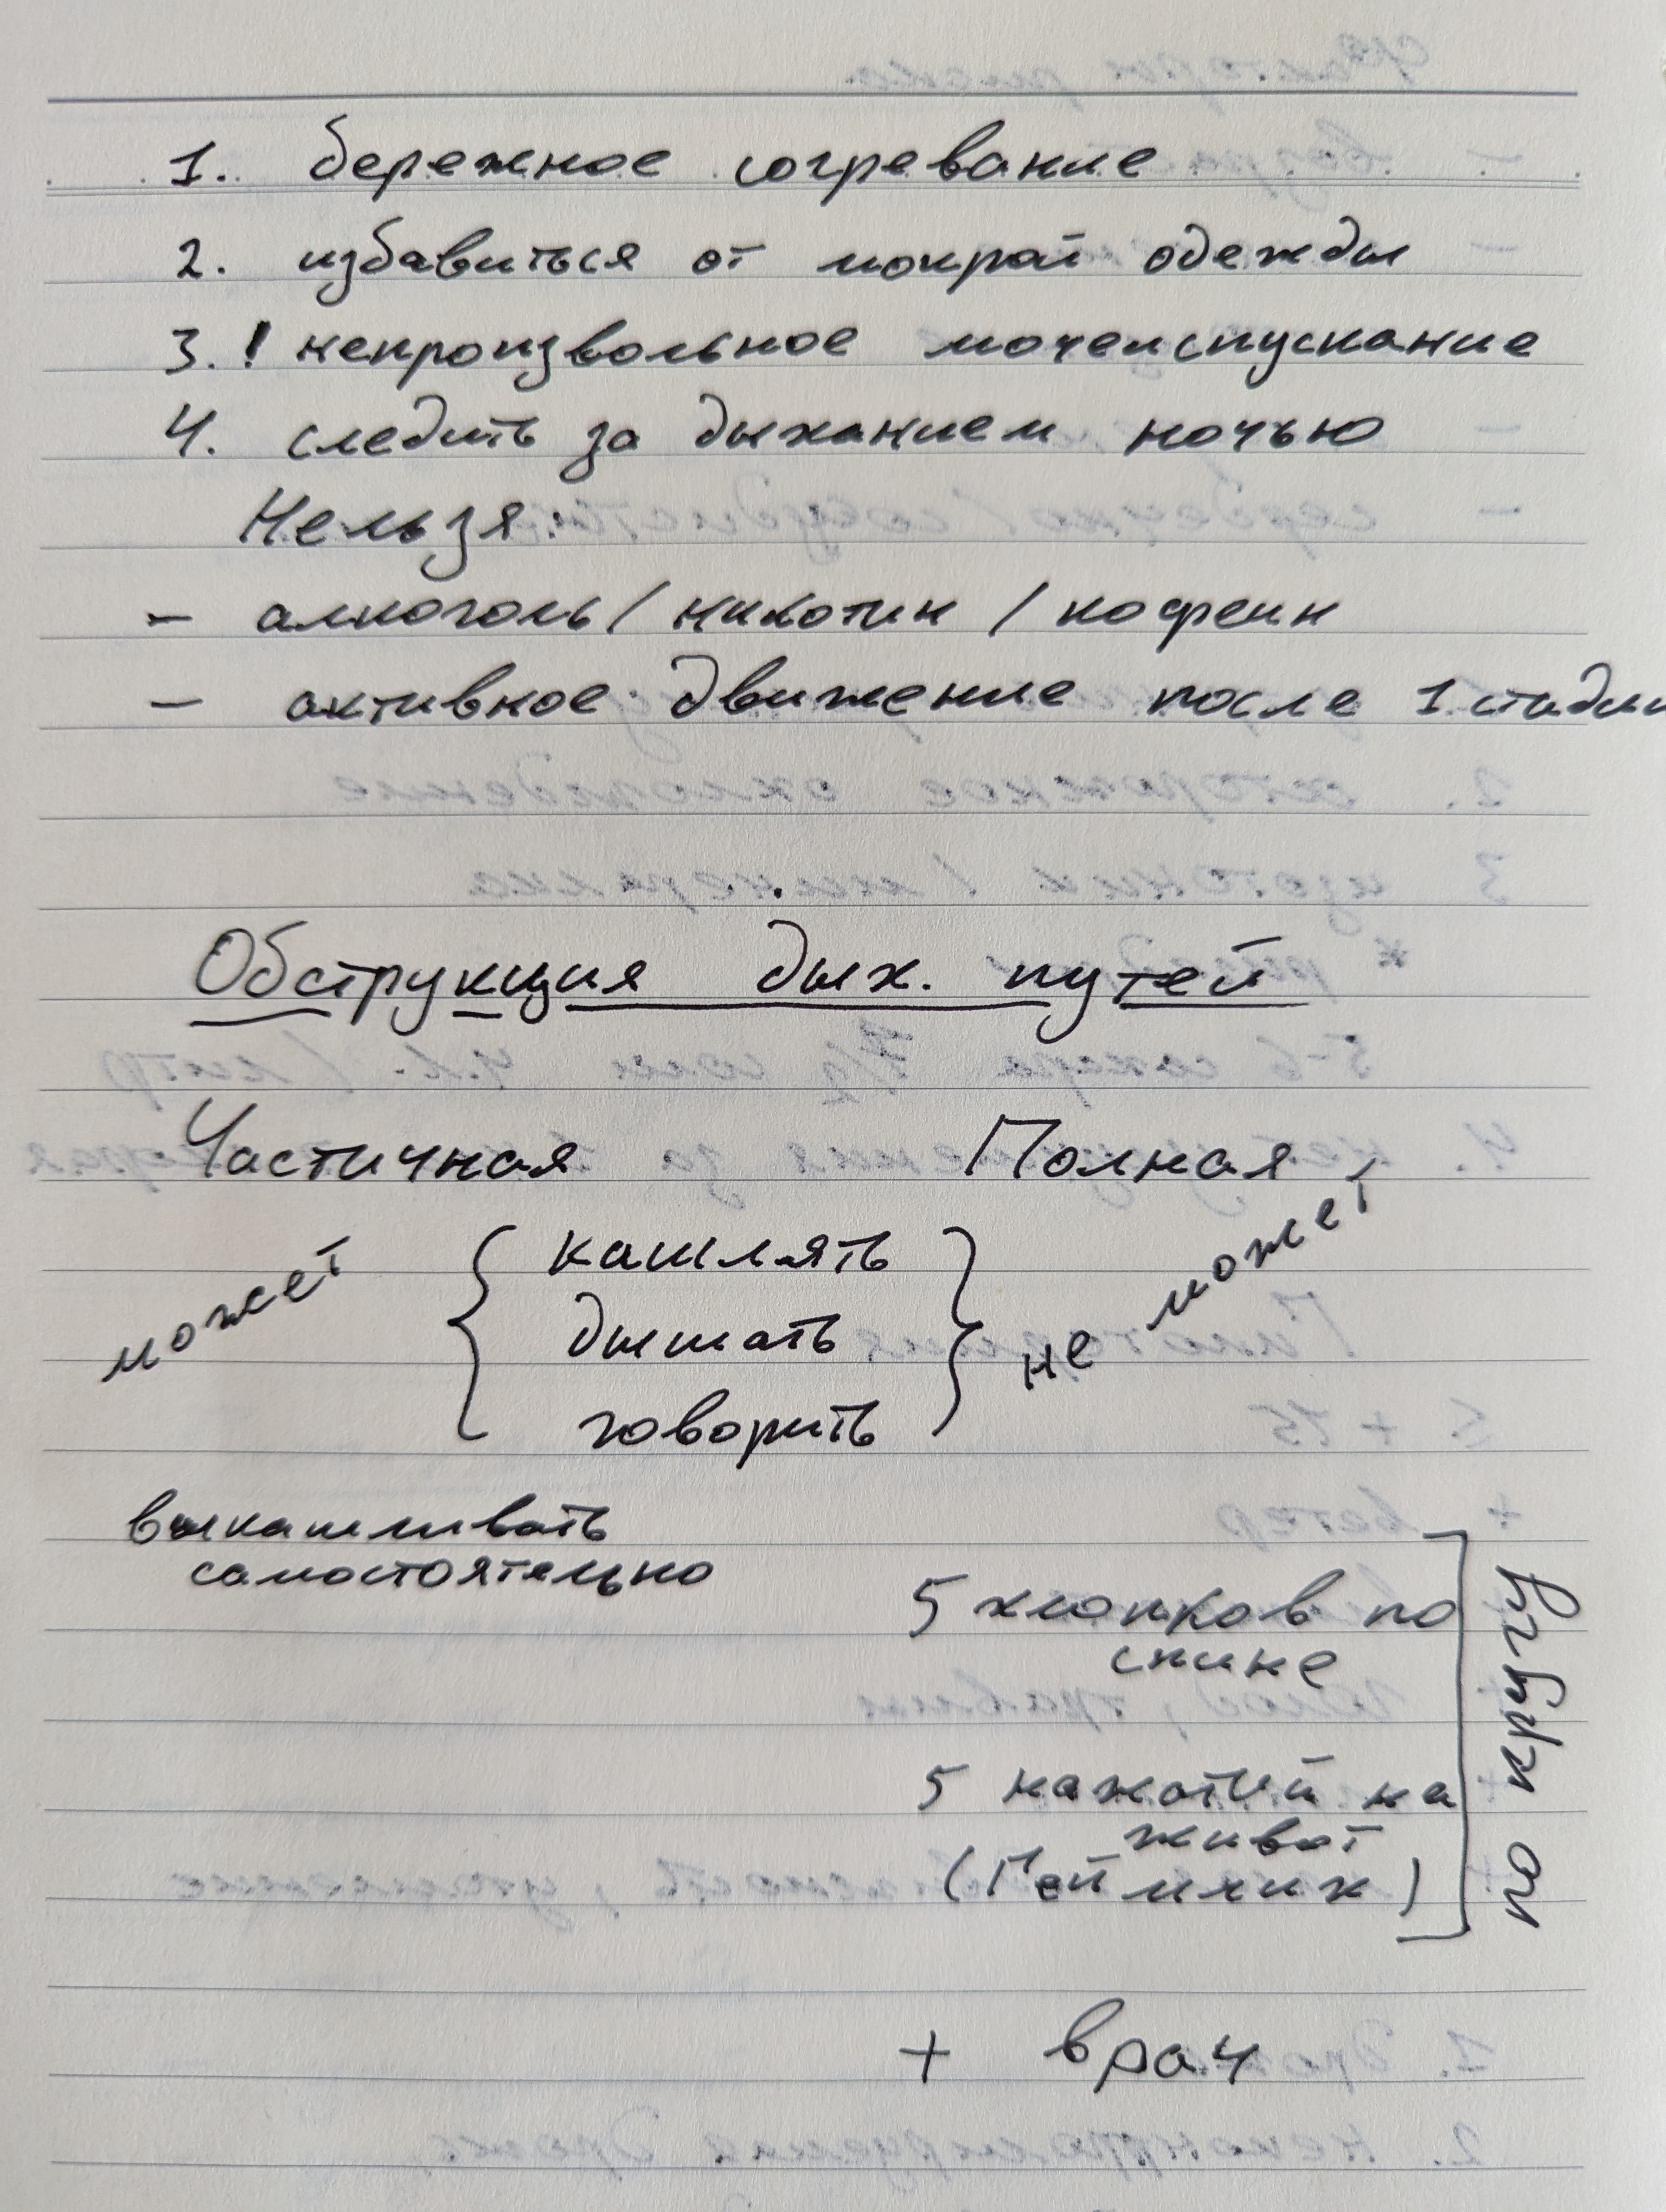 1. бережное согревание
2. избавиться от мокрой одежды
3. ! непроизвольное мочеиспускание
4. следить за дыханием ночью
Нельзя:
- алкоголь / никотин / кофеин
- активное движение после 1 стадии
Обструкция дых. путей
Частичная Полная
может { кашлять } не может
дышать
говорить
выкашливать
самостоятельно
5 хлопков по
спине
5 нажатий на
живот
(Геймлих)
по кругу
+ врач